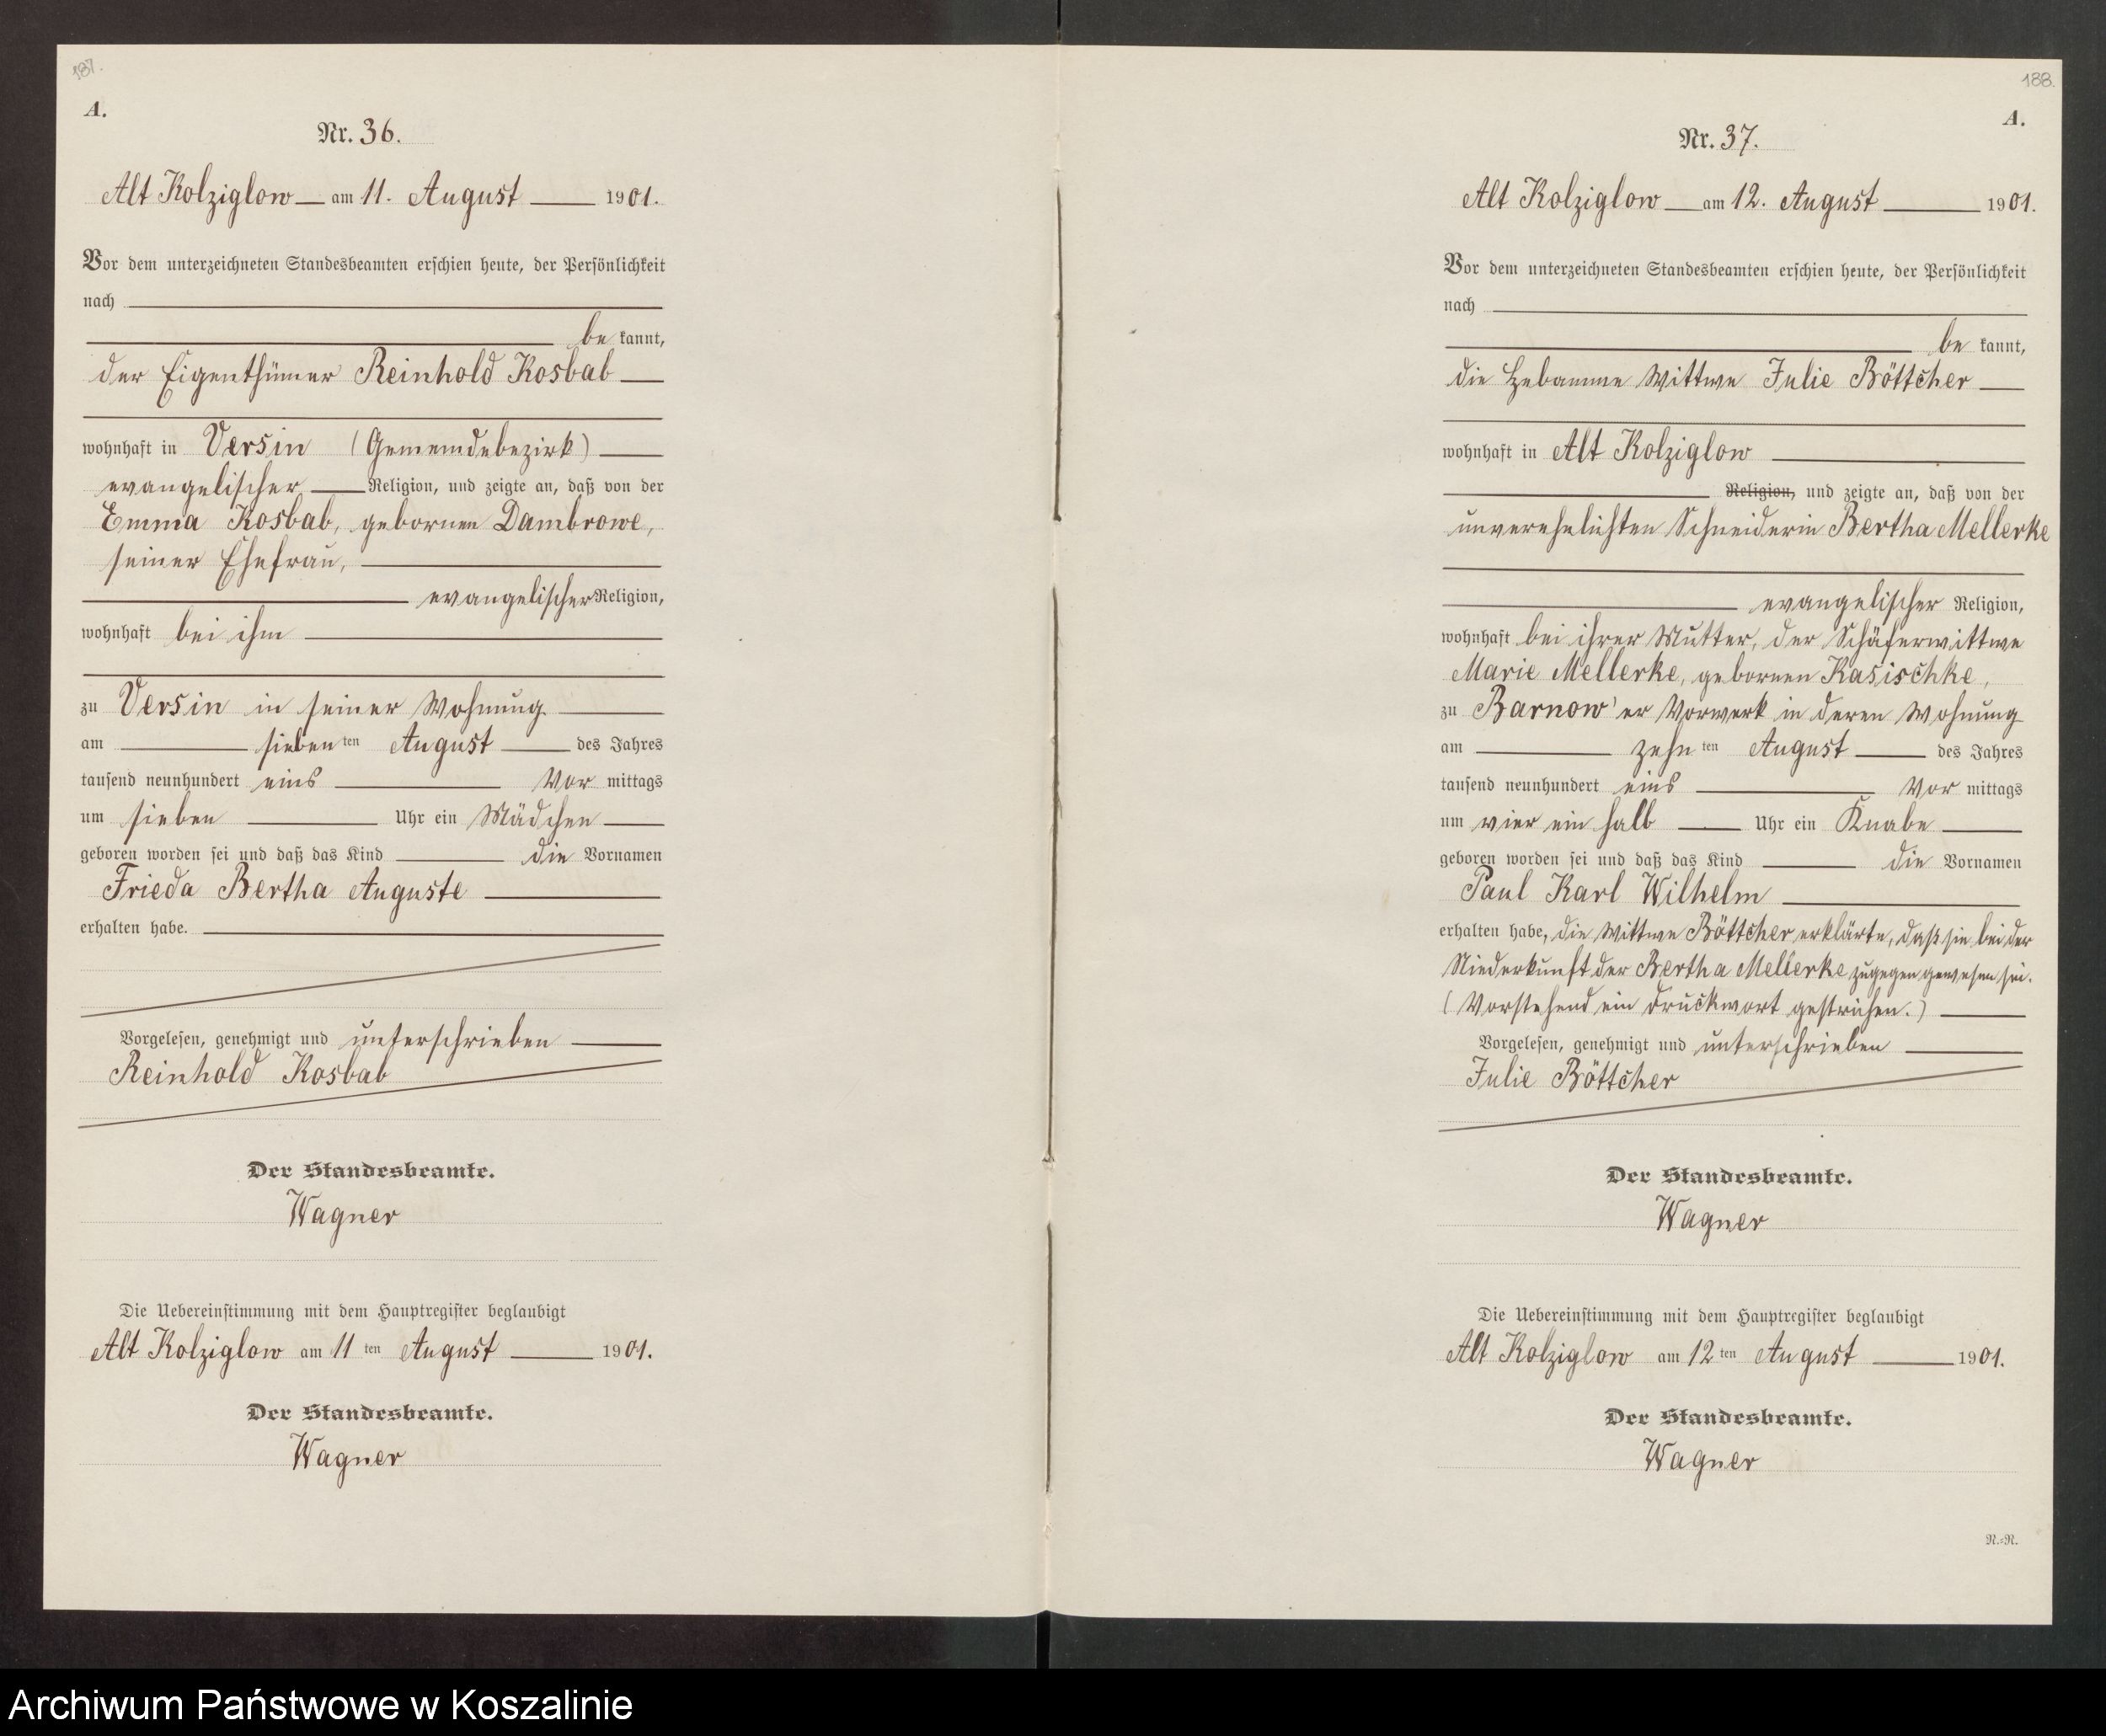 187.
A.
Nr. 36.
Alt Kolziglow am 11. August 1901.
Vor dem unterzeichneten Standesbeamten erschien heute, der Persönlichkeit
nach
be kannt,
der Eigenthümer Reinhold Kosbab
wohnhaft in Versin (Gemeindebezirk)
evangelischer Religion, und zeigte an, daß von der
Emma Kosbab, gebornen Dambrowe,
seiner Ehefrau,
evangelischer Religion,
wohnhaft bei ihm
zu Versin in seiner Wohnung
am sieben ten August des Jahres
tausend neunhundert eins Vor mittags
um sieben Uhr ein Mädchen
geboren worden sei und daß das Kind die Vornamen
Frieda Bertha Auguste
erhalten habe.
Vorgelesen, genehmigt und unterschrieben
Reinhold Kosbab
Der Standesbeamte.
Wagner
Die Uebereinstimmung mit dem Hauptregister beglaubigt
Alt Kolziglow am 11 ten August 1901.
Der Standesbeamte.
Wagner
188.
A.
Nr. 37.
Alt Kolziglow am 12. August 1901.
Vor dem unterzeichneten Standesbeamten erschien heute, der Persönlichkeit
nach
be kannt,
die Hebamme Wittwe Julie Böttcher
wohnhaft in Alt Kolziglow
Religion, und zeigte an, daß von der
unverehelichten Schneiderin Bertha Mellerke
evangelischer Religion,
wohnhaft bei ihrer Mutter, der Schäferwittwe
Marie Mellerke, gebornen Kasischke,
zu Barnow'er Vorwerk in deren Wohnung
am zehn ten August des Jahres
tausend neunhundert eins Vor mittags
um vier ein halb Uhr ein Knabe
geboren worden sei und daß das Kind die Vornamen
Paul Karl Wilhelm
erhalten habe, die Wittwe Böttcher erklärte, daß sie bei der
Niederkunft der Bertha Mellerke zugegen gewesen sei.
(Vorstehend ein Druckwort gestrichen.)
Vorgelesen, genehmigt und unterschrieben
Julie Böttcher
Der Standesbeamte.
Wagner
Die Uebereinstimmung mit dem Hauptregister beglaubigt
Alt Kolziglow am 12 ten August 1901.
Der Standesbeamte.
Wagner
N.=R.
Archiwum Państwowe w Koszalinie